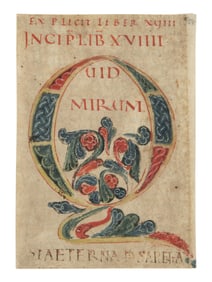 EXPLICIT LIBER XVIII
INCIP LIB XVIIII
QUID
MIRUM
SI AETERNA D SAPI